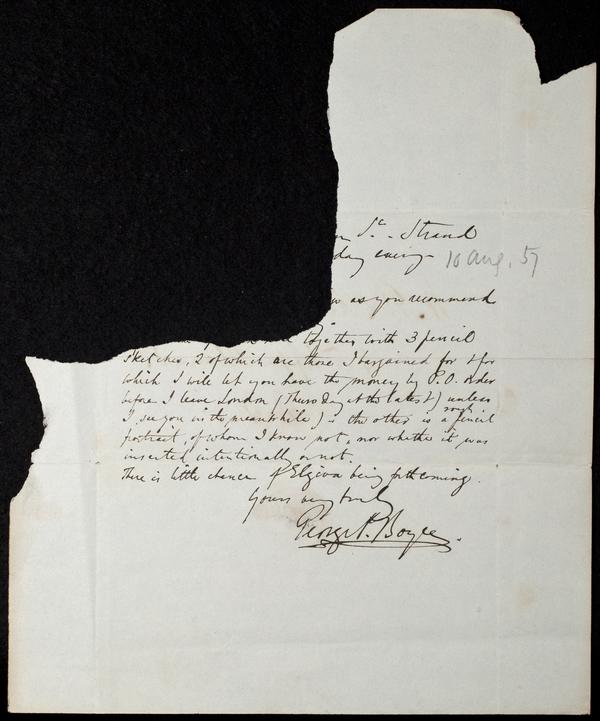 St. - Strand
day evening 10 Aug. 57
as you recommend
together with 3 pencil
sketches, 2 of which are those I bargained for & for
which I will let you have the money by P.O. order
before I leave London (Thursday at the latest) unless
I see you in the meanwhile) & the other is a rough pencil
portrait, of whom I know not, nor whether it was
inserted intentionally or not.
There is little chance of Elgiva being forthcoming.
Yours very truly
George P. Boyce.